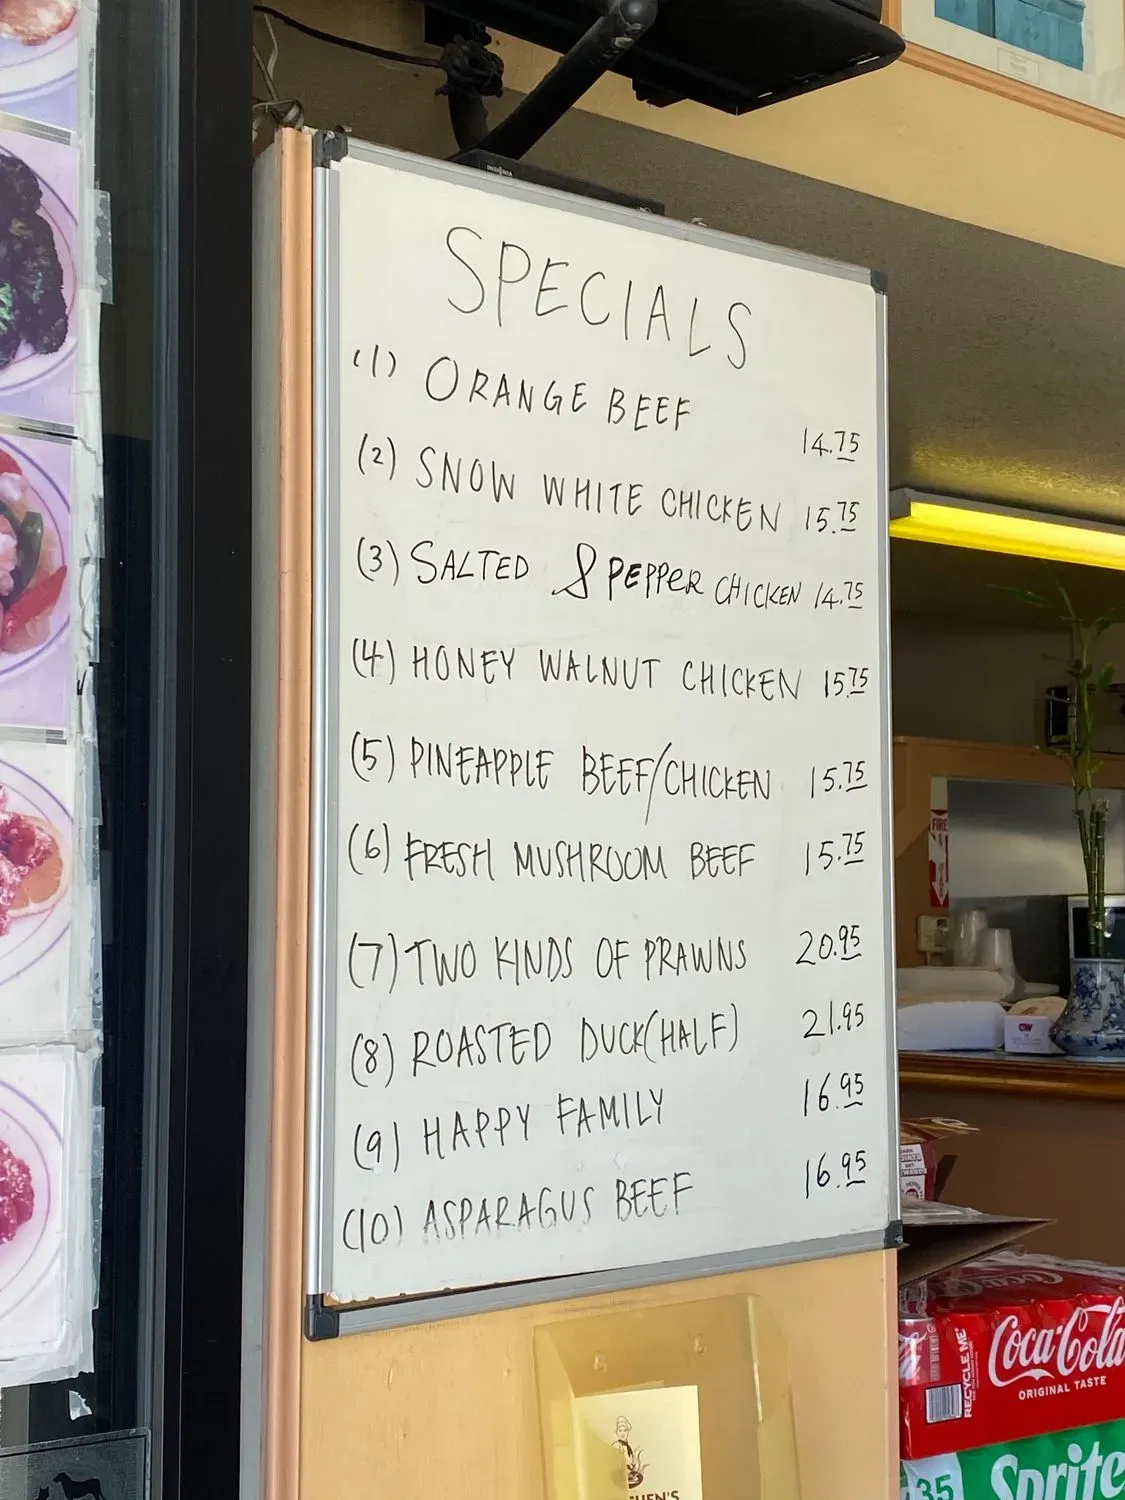 INSIGNIA
SPECIALS
(1) ORANGE BEEF 14.75
(2) SNOW WHITE CHICKEN 15.75
(3) SALTED & PEPPER CHICKEN 14.75
(4) HONEY WALNUT CHICKEN 15.75
(5) PINEAPPLE BEEF/CHICKEN 15.75
(6) FRESH MUSHROOM BEEF 15.75
(7) TWO KINDS OF PRAWNS 20.95
(8) ROASTED DUCK(HALF) 21.95
(9) HAPPY FAMILY 16.95
(10) ASPARAGUS BEEF 16.95
FIRE
RECYCLE ME
Coca-Cola
ORIGINAL TASTE
35
Sprite